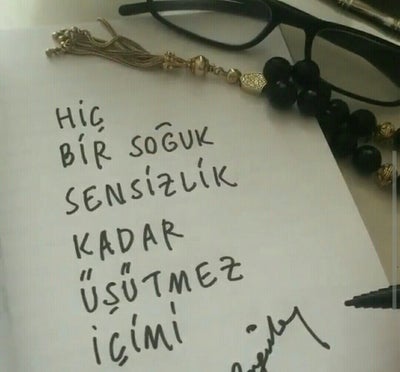 HİÇ
BİR SOĞUK
SENSİZLİK
KADAR
ÜŞÜTMEZ
İÇİMİ